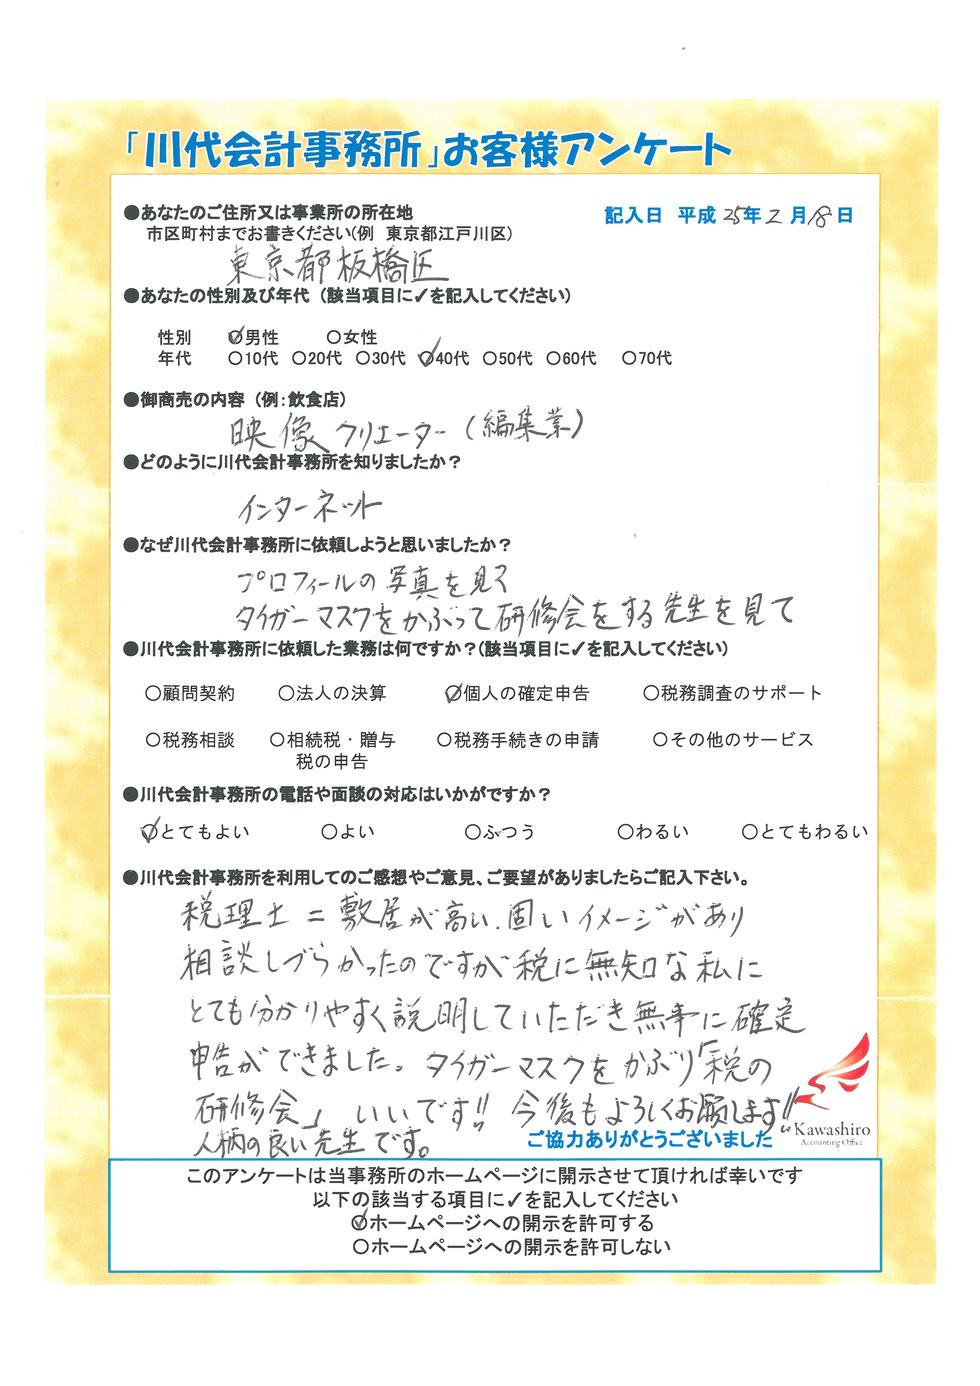 「川代会計事務所」お客様アンケート
●あなたのご住所又は事業所の所在地
記入日 平成25年2月18日
市区町村までお書きください(例 東京都江戸川区)
東京都板橋区
●あなたの性別及び年代 (該当項目に✓を記入してください)
性別 ✓○男性 ○女性
年代 ○10代 ○20代 ○30代 ✓○40代 ○50代 ○60代 ○70代
●御商売の内容 (例:飲食店)
映像クリエーター(編集業)
●どのように川代会計事務所を知りましたか?
インターネット
●なぜ川代会計事務所に依頼しようと思いましたか?
プロフィールの写真を見て
タイガーマスクをかぶって研修会をする先生を見て
●川代会計事務所に依頼した業務は何ですか?(該当項目に✓を記入してください)
○顧問契約 ○法人の決算 ✓○個人の確定申告 ○税務調査のサポート
○税務相談 ○相続税・贈与 ○税務手続きの申請 ○その他のサービス
税の申告
●川代会計事務所の電話や面談の対応はいかがですか?
✓○とてもよい ○よい ○ふつう ○わるい ○とてもわるい
●川代会計事務所を利用してのご感想やご意見、ご要望がありましたらご記入下さい。
税理士=敷居が高い.固いイメージがあり
相談しづらかったのですが税に無知な私に
とても分かりやすく説明していただき無事に確定
申告ができました。タイガーマスクをかぶり「税の
研修会」いいです!! 今後もよろしくお願します!!
人柄の良い先生です。
ご協力ありがとうございました
Kawashiro
Accounting Office
このアンケートは当事務所のホームページに開示させて頂ければ幸いです
以下の該当する項目に✓を記入してください
✓○ホームページへの開示を許可する
○ホームページへの開示を許可しない